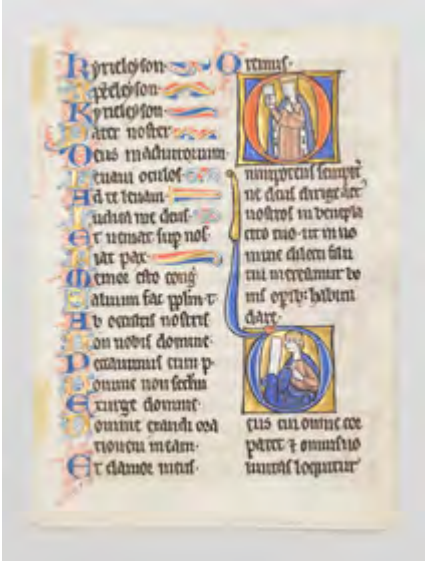 Kyrieleyson
Xpeleyson
Kyrieleyson
Pater noster
Deus in adiutorium
Leuaui oculos
Ad te leuaui
me deus
Et ueniat sup nos
Fiat pax
Memor esto cong
Saluum fac pplm t
Ab occultis nostris
Non nobis domine
Peccauimus cum p
Domine non
Exurge domine
Domine exaudi ora
tionem meam
Et clamor meus
Oremus
Omnipotens sempit
ne deus dirige act
nostros in benepla
cito tuo ut in no
mine dilecti filii
tui mereamur bo
nis opib; habun
dare
Deus cui omne cor
patet ⁊ omnis uo
luntas loquitur